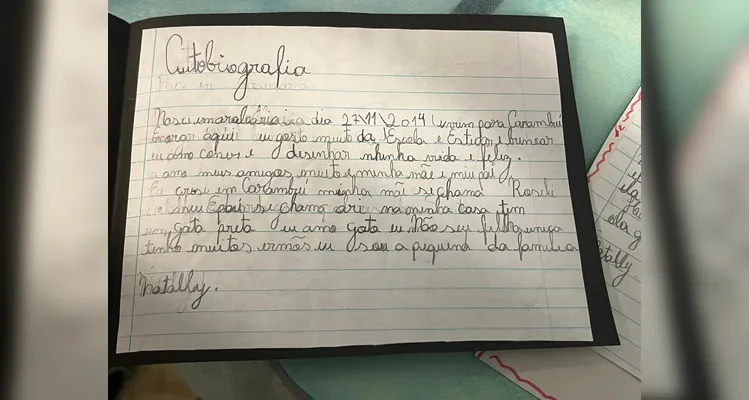 Autobiografia
Nasci dia 27\11\2014 vim para Carambuí
morar aqui eu gosto muito da Escola e Estudar e brincar
eu amo e desenhar minha vida e feliz.
amo meus amigos muito e minha mãe e meu pai
Eu cresi em Carambuí minha mãe si chama Roseli
si chama na minha casa tem
gata preta eu amo gata eu Não sou filha unica
tenho muitos irmãos eu sou a piquena da familia
Natally.
ela
ela g
atally